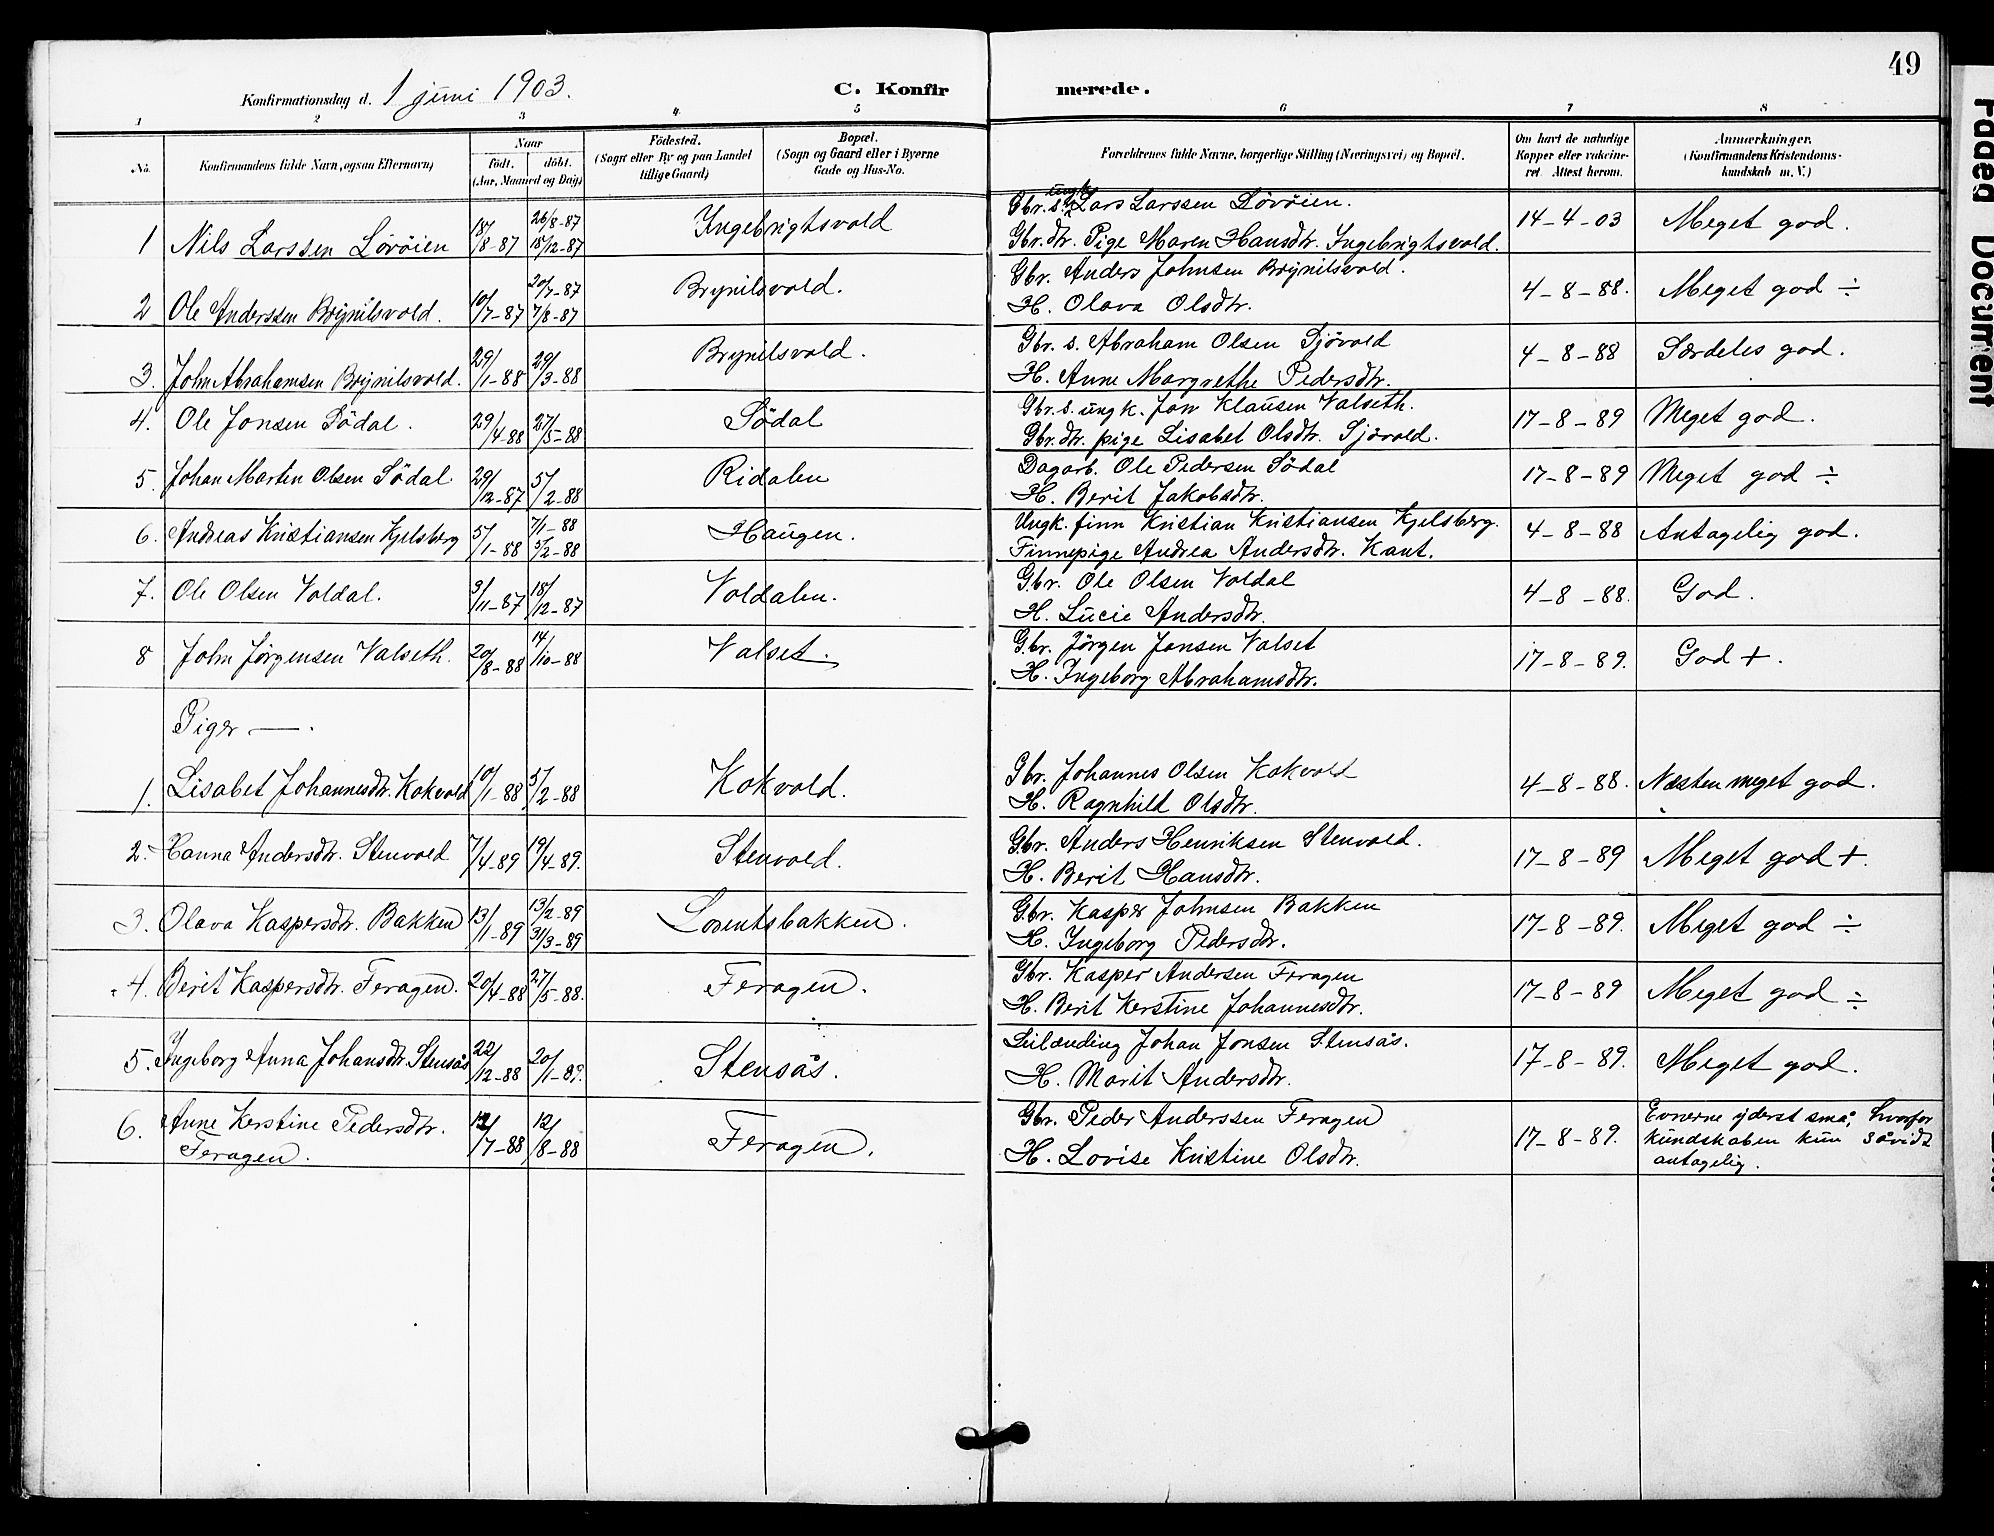 49
Konfirmationsdag d. 1 juni 1903. C. Konfirmerede.
1 2 3 4. 5 6 7 8
No. Konfirmandens fulde Navn, ogsaa Efternavn)
Naar
født. døbt.
(Aar, Maaned og Dag)
Fødested.
(Sogn eller By og paa Landet
tillige Gaard)
Bopæl.
(Sogn og Gaard eller i Byerne
Gade og Hus-No.
Forældrenes fulde Navne, borgerlige Stilling (Næringsvei) og Bopæl.
Om havt de naturlige
Kopper eller vakcine-
ret. Attest herom.
Anmærkninger.
(Konfirmandens Kristendoms-
kundskab m. V.)
1 Nils Larssen Løvøien 18/8-87 26/8-87 18/12-87 Ingebrigtsvold Gbr. s. ungk. Lars Larssen Løvøien. 14-4-03 Meget god.
Gbr. dtr. Pige Maren Hansdtr. Ingebrigtsvold.
2 Ole Anderssen Brynilsvold. 10/7-87 20/7-87 7/8-87 Brynilsvold. Gbr. Anders Johnsen Brynilsvold. 4-8-88. Meget god ÷
H. Olava Olsdtr.
3. John Abrahamsen Brynilsvold. 29/1-88 29/3-88 Brynilsvold. Gbr. s. Abraham Olsen Sjøvold 4-8-88 Særdeles god.
H. Anne Margrethe Pedersdtr.
4. Ole Jonsen Sødal. 29/4-88 27/5-88 Sødal Gbr. s. ungk. Jon Klausen Valseth. 17-8-89 Meget god.
Gbr. dtr. pige Lisabet Olsdtr. Sjøvold.
5. Johan Martin Olsen Sødal 29/12-87 5/2-88 Ridalen Dagarb. Ole Pedersen Sødal 17-8-89 Meget god ÷
H. Berit Jakobsdtr.
6. Andreas Kristiansen Kjelsberg 5/1-88 7/1-88 5/2-88 Haugen. Ungk. finn Kristian Kristiansen Kjelsberg. 4-8-88 Antagelig god.
Finnepige Andrea Andersdtr. Kant.
7. Ole Olsen Voldal. 3/11-87 18/12-87 Voldalen. Gbr. Ole Olsen Voldal 4-8-88. God.
H. Lucie Andersdtr.
8 John Jørgensen Valseth. 20/8-88 14/10-88 Valset. Gbr. Jörgen Jonsen Valset 17-8-89. God +.
H. Ingeborg Abrahamsdtr.
Piger —.
1. Lisabet Johannesdtr. Kokvold 10/1-88 5/2-88 Kokvold. Gbr. Johannes Olsen Kokvold 4-8-88. Næsten meget god.
H. Ragnhild Olsdtr.
2. Hanna Andersdtr. Stenvold 7/4-89 19/4-89. Stenvold. Gbr. Anders Henriksen Stenvold. 17-8-89 Meget god +.
H. Berit Hansdtr.
3. Olava Kaspersdtr. Bakken 13/1-89 13/2-89 31/3-89 Lorentsbakken. Gbr. Kasper Johnsen Bakken 17-8-89. Meget god ÷
H. Ingeborg Pedersdtr.
4. Berit Kaspersdtr. Feragen. 20/4-88 27/5-88. Feragen. Gbr. Kasper Andersen Feragen 17-8-89 Meget god ÷
H. Berit Kerstine Johannesdtr.
5. Ingeborg Anna Johansdtr. Stensås 22/12-88 20/1-89. Stensås. Leilænding Johan Jonsen Stensås. 17-8-89. Meget god.
H. Marit Andersdtr.
6. Anne Kerstine Pedersdtr. /7-88 12/8-88 Feragen. Gbr. Peder Anderssen Feragen 17-8-89. Evnerne yderst små, hvorfor
Feragen. H. Lovise Kristine Olsdtr. kundskaben kun såvidt
antagelig.
Document